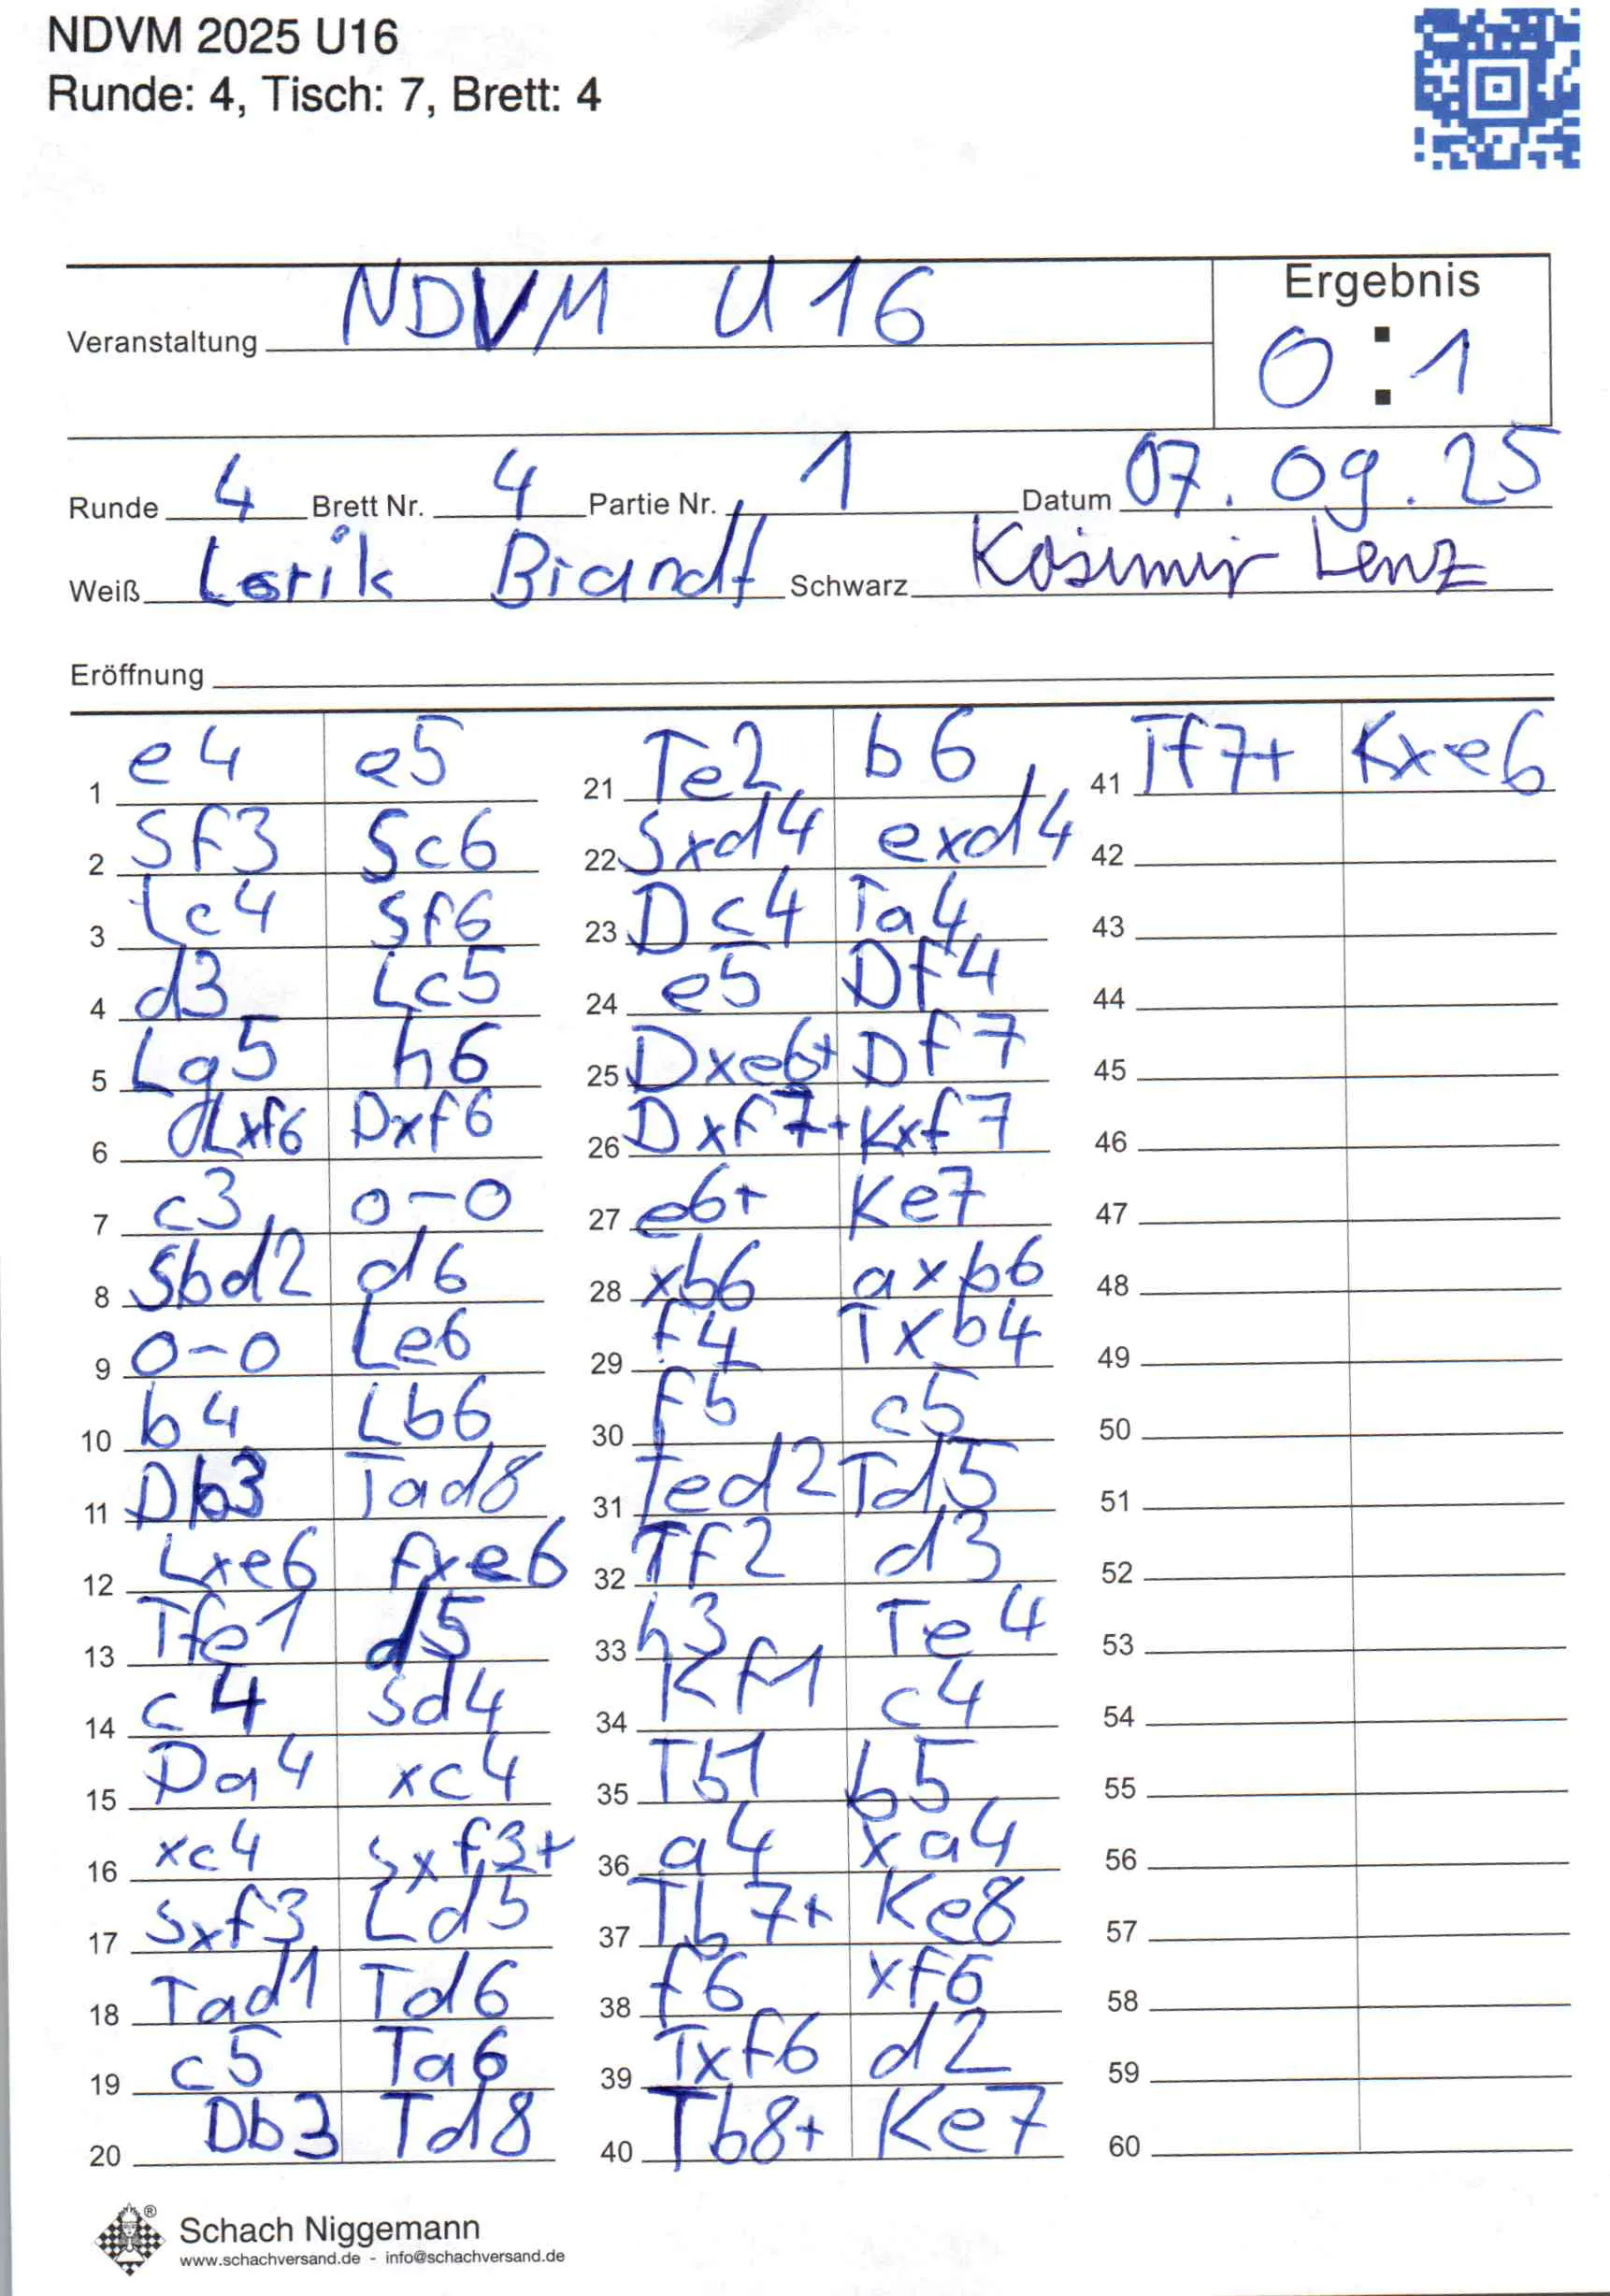 NDVM 2025 U16
Runde: 4, Tisch: 7, Brett: 4
Ergebnis
Veranstaltung NDVM U16
0:1
Runde 4 Brett Nr. 4 Partie Nr. 1 Datum 07.09.25
Weiß Lorik Brandt Schwarz Kasimir Lenz
Eröffnung
1 e4 e5
2 Sf3 Sc6
3 Lc4 Sf6
4 d3 Lc5
5 Lg5 h6
6 Lxf6 Dxf6
7 c3 0-0
8 Sbd2 d6
9 0-0 Le6
10 b4 Lb6
11 Db3 Tad8
12 Lxe6 fxe6
13 Tfe1 d5
14 c4 Sd4
15 Da4 xc4
16 xc4 Sxf3+
17 Sxf3 Ld5
18 Tad1 Td6
19 c5 Ta6
20 Db3 Td8
21 Te2 b6
22 Sxd4 exd4
23 Dc4 Ta4
24 e5 Df4
25 Dxe6+ Df7
26 Dxf7+ Kxf7
27 e6+ Ke7
28 xb6 axb6
29 f4 Txb4
30 f5 c5
31 Ted2 Td5
32 Tf2 d3
33 h3 Te4
34 Kf1 c4
35 Tb1 b5
36 a4 xa4
37 Tb7+ Ke8
38 f6 xf6
39 Txf6 d2
40 Tb8+ Ke7
41 Tf7+ Kxe6
42
43
44
45
46
47
48
49
50
51
52
53
54
55
56
57
58
59
60
Schach Niggemann
www.schachversand.de - info@schachversand.de